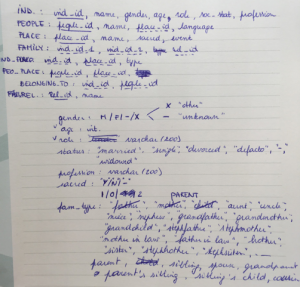 IND. : ind_id, name, gender, age, role, soc-stat, profession
PEOPLE : people_id, name, place_id, language
PLACE : place_id, name, sacred, event
FAMILY : ind_id_1, ind_id_2, rel_id
IND_PLACE: ind_id, place_id, type
PEO_PLACE : people_id, place_id,
BELONGING TO : ind_id, people_id
: rel_id, name
gender : M / F / - / X X "other"
- "unknown"
age : int.
role : varchar (200)
status : "married", "single", "divorced", "defacto", "-",
"widowed"
profession : varchar (200)
sacred : Y/N/-
1/0/ 2 PARENT
fam_type : father, mother, child, "aunt", "uncle",
"niece", "nephew", "grandfather", "grandmother",
"grandchild", "stepfather", "stepmother",
"mother in law", "father in law", "brother",
"sister", "stepbrother", "stepsister", -
parent, sibling, spouse, grandparent
parent's sibling, sibling's child, cousin